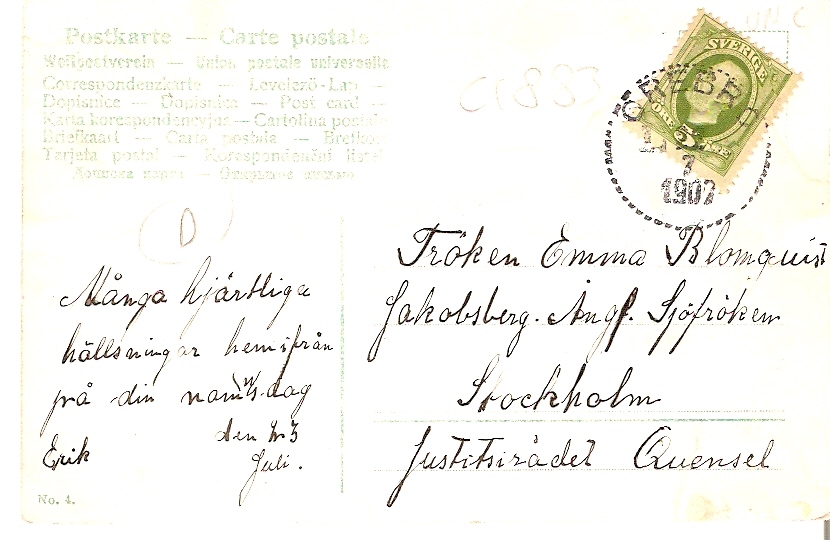 Postkarte — Carte postale
Weltpostverein — Union postale universelle
Correspondenzkarte — Levelező-Lap —
Dopisnice — Dopisnica — Post card —
Karta korespondencyjna — Cartolina postale
Briefkaart — Carta postala — Brefkort
Tarjeta postal — Korespondenční listek
SVERIGE
5
ÖRE
ÖREBRO
1907
D
Fröken Emma Blomquist
Jakobsberg. Ångf. Sjöfröken
Stockholm
Justitsirådet Quensel
Många hjärtliga
hällsningar hemifrån
på din namnsdag
den 23
Juli.
Erik
No. 4.